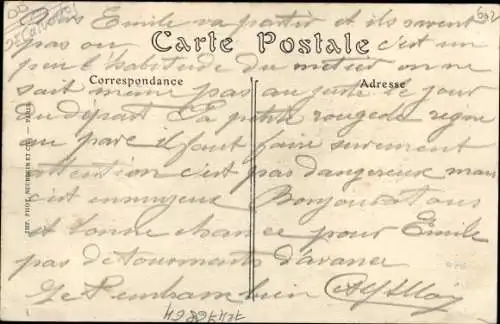 Emile va partir et ils savent
pas ou
Carte Postale
c'est un
peu l'habitude du métier on ne
Correspondance
Adresse
sait meme pas au juste le jour
du départ La petite rougeole regne
au parc il faut faire surement
attention c'est pas dangereux mais
c'est ennuyeux Bonjour a tous
et bonne chance pour Emile
pas de tourments d'avance
bien
IMP. PHOT. NEURDEIN ET Cie. — PARIS